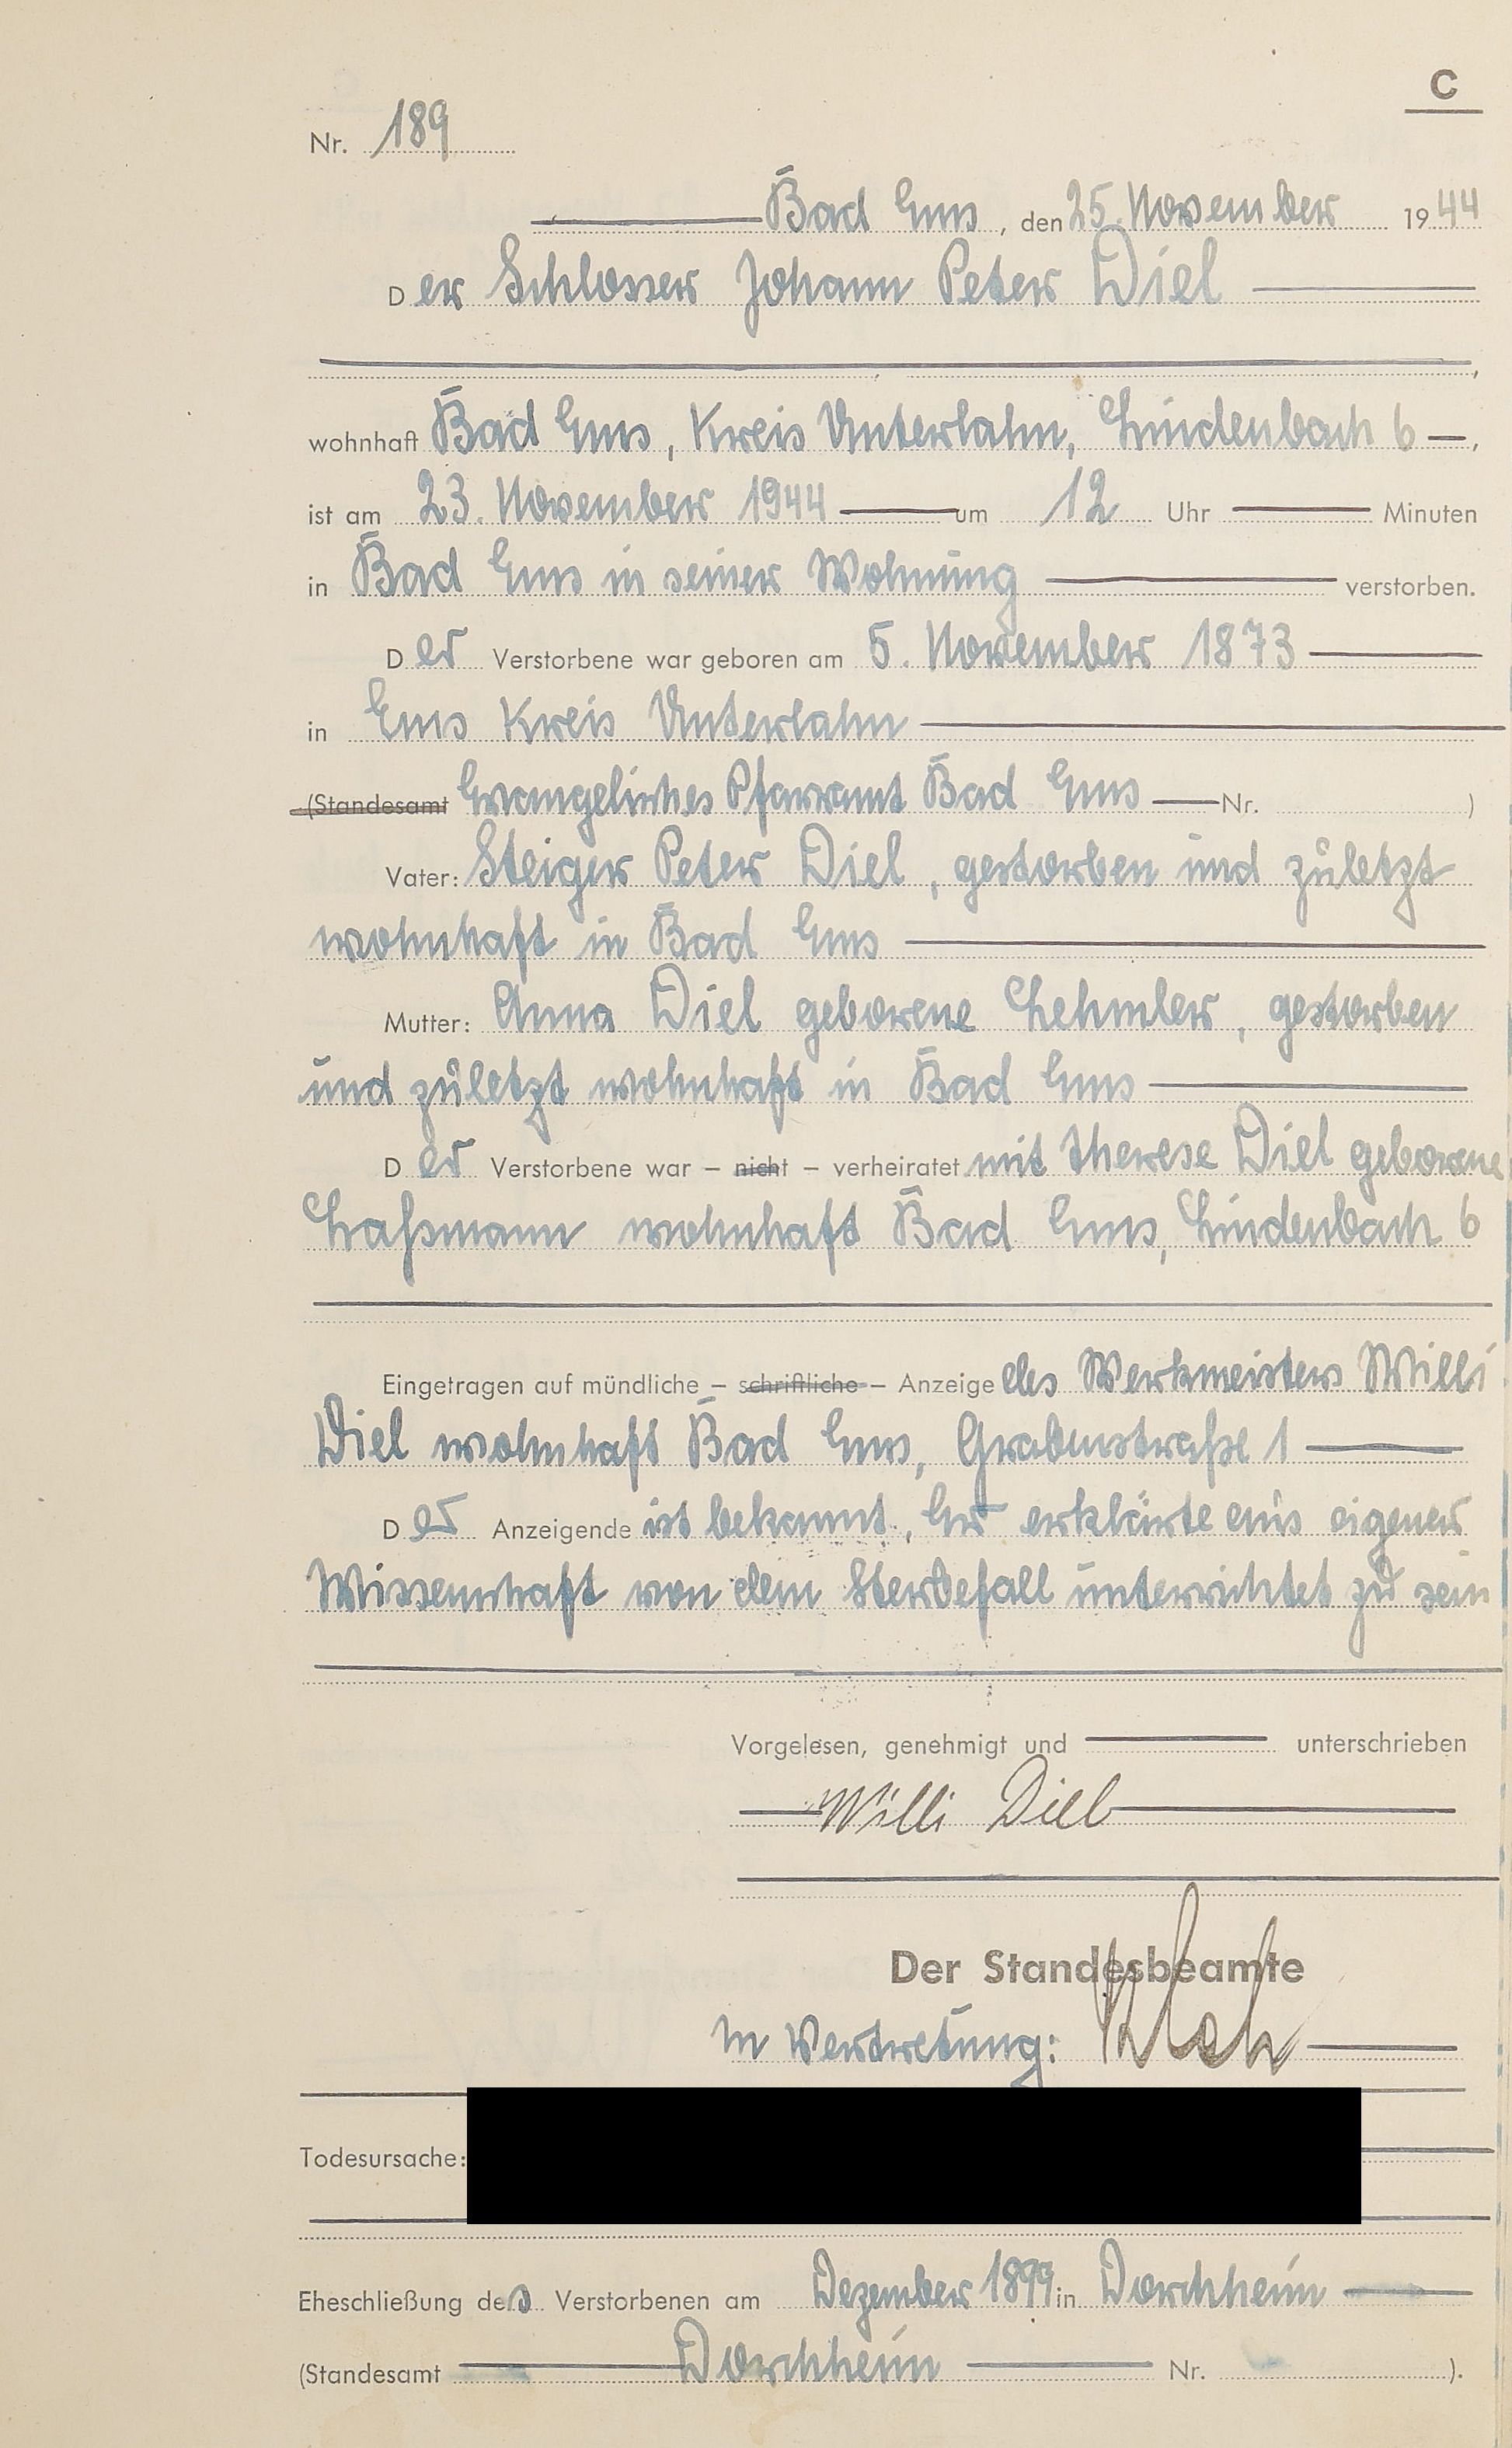 C
Nr. 189
Bad Ems, den 25. November 1944
Der Schlosser Johann Peter Diel
,
wohnhaft Bad Ems, Kreis Unterlahn, Lindenbach 6 —,
ist am 23. November 1944 — um 12 Uhr — Minuten
in Bad Ems in seiner Wohnung — verstorben.
Der Verstorbene war geboren am 5. November 1873
in Ems Kreis Unterlahn
(Standesamt Evangelisches Pfarramt Bad Ems — Nr. )
Vater: Steiger Peter Diel, gestorben und zuletzt
wohnhaft in Bad Ems
Mutter: Anna Diel geborene Lehmler, gestorben
und zuletzt wohnhaft in Bad Ems
Der Verstorbene war – nicht – verheiratet mit Therese Diel geborene
Laßmann wohnhaft Bad Ems, Lindenbach 6
Eingetragen auf mündliche – schriftliche – Anzeige des Werkmeisters Willi
Diel wohnhaft Bad Ems, Grabenstraße 1
Der Anzeigende ist bekannt. Er erklärte aus eigener
Wissenschaft von dem Sterbefall unterrichtet zu sein
Vorgelesen, genehmigt und — unterschrieben
Willi Diel
Der Standesbeamte
In Vertretung:
Todesursache:
Eheschließung des Verstorbenen am Dezember 1899 in Dorchheim
(Standesamt Dorchheim — Nr. ).